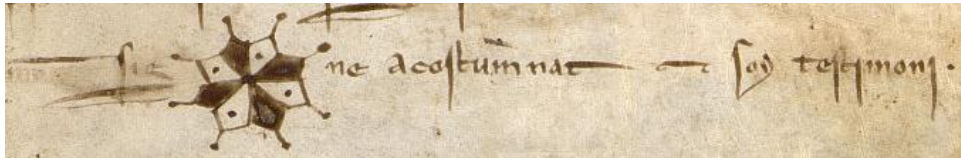 sig ne acostumnat et soy testimoni.